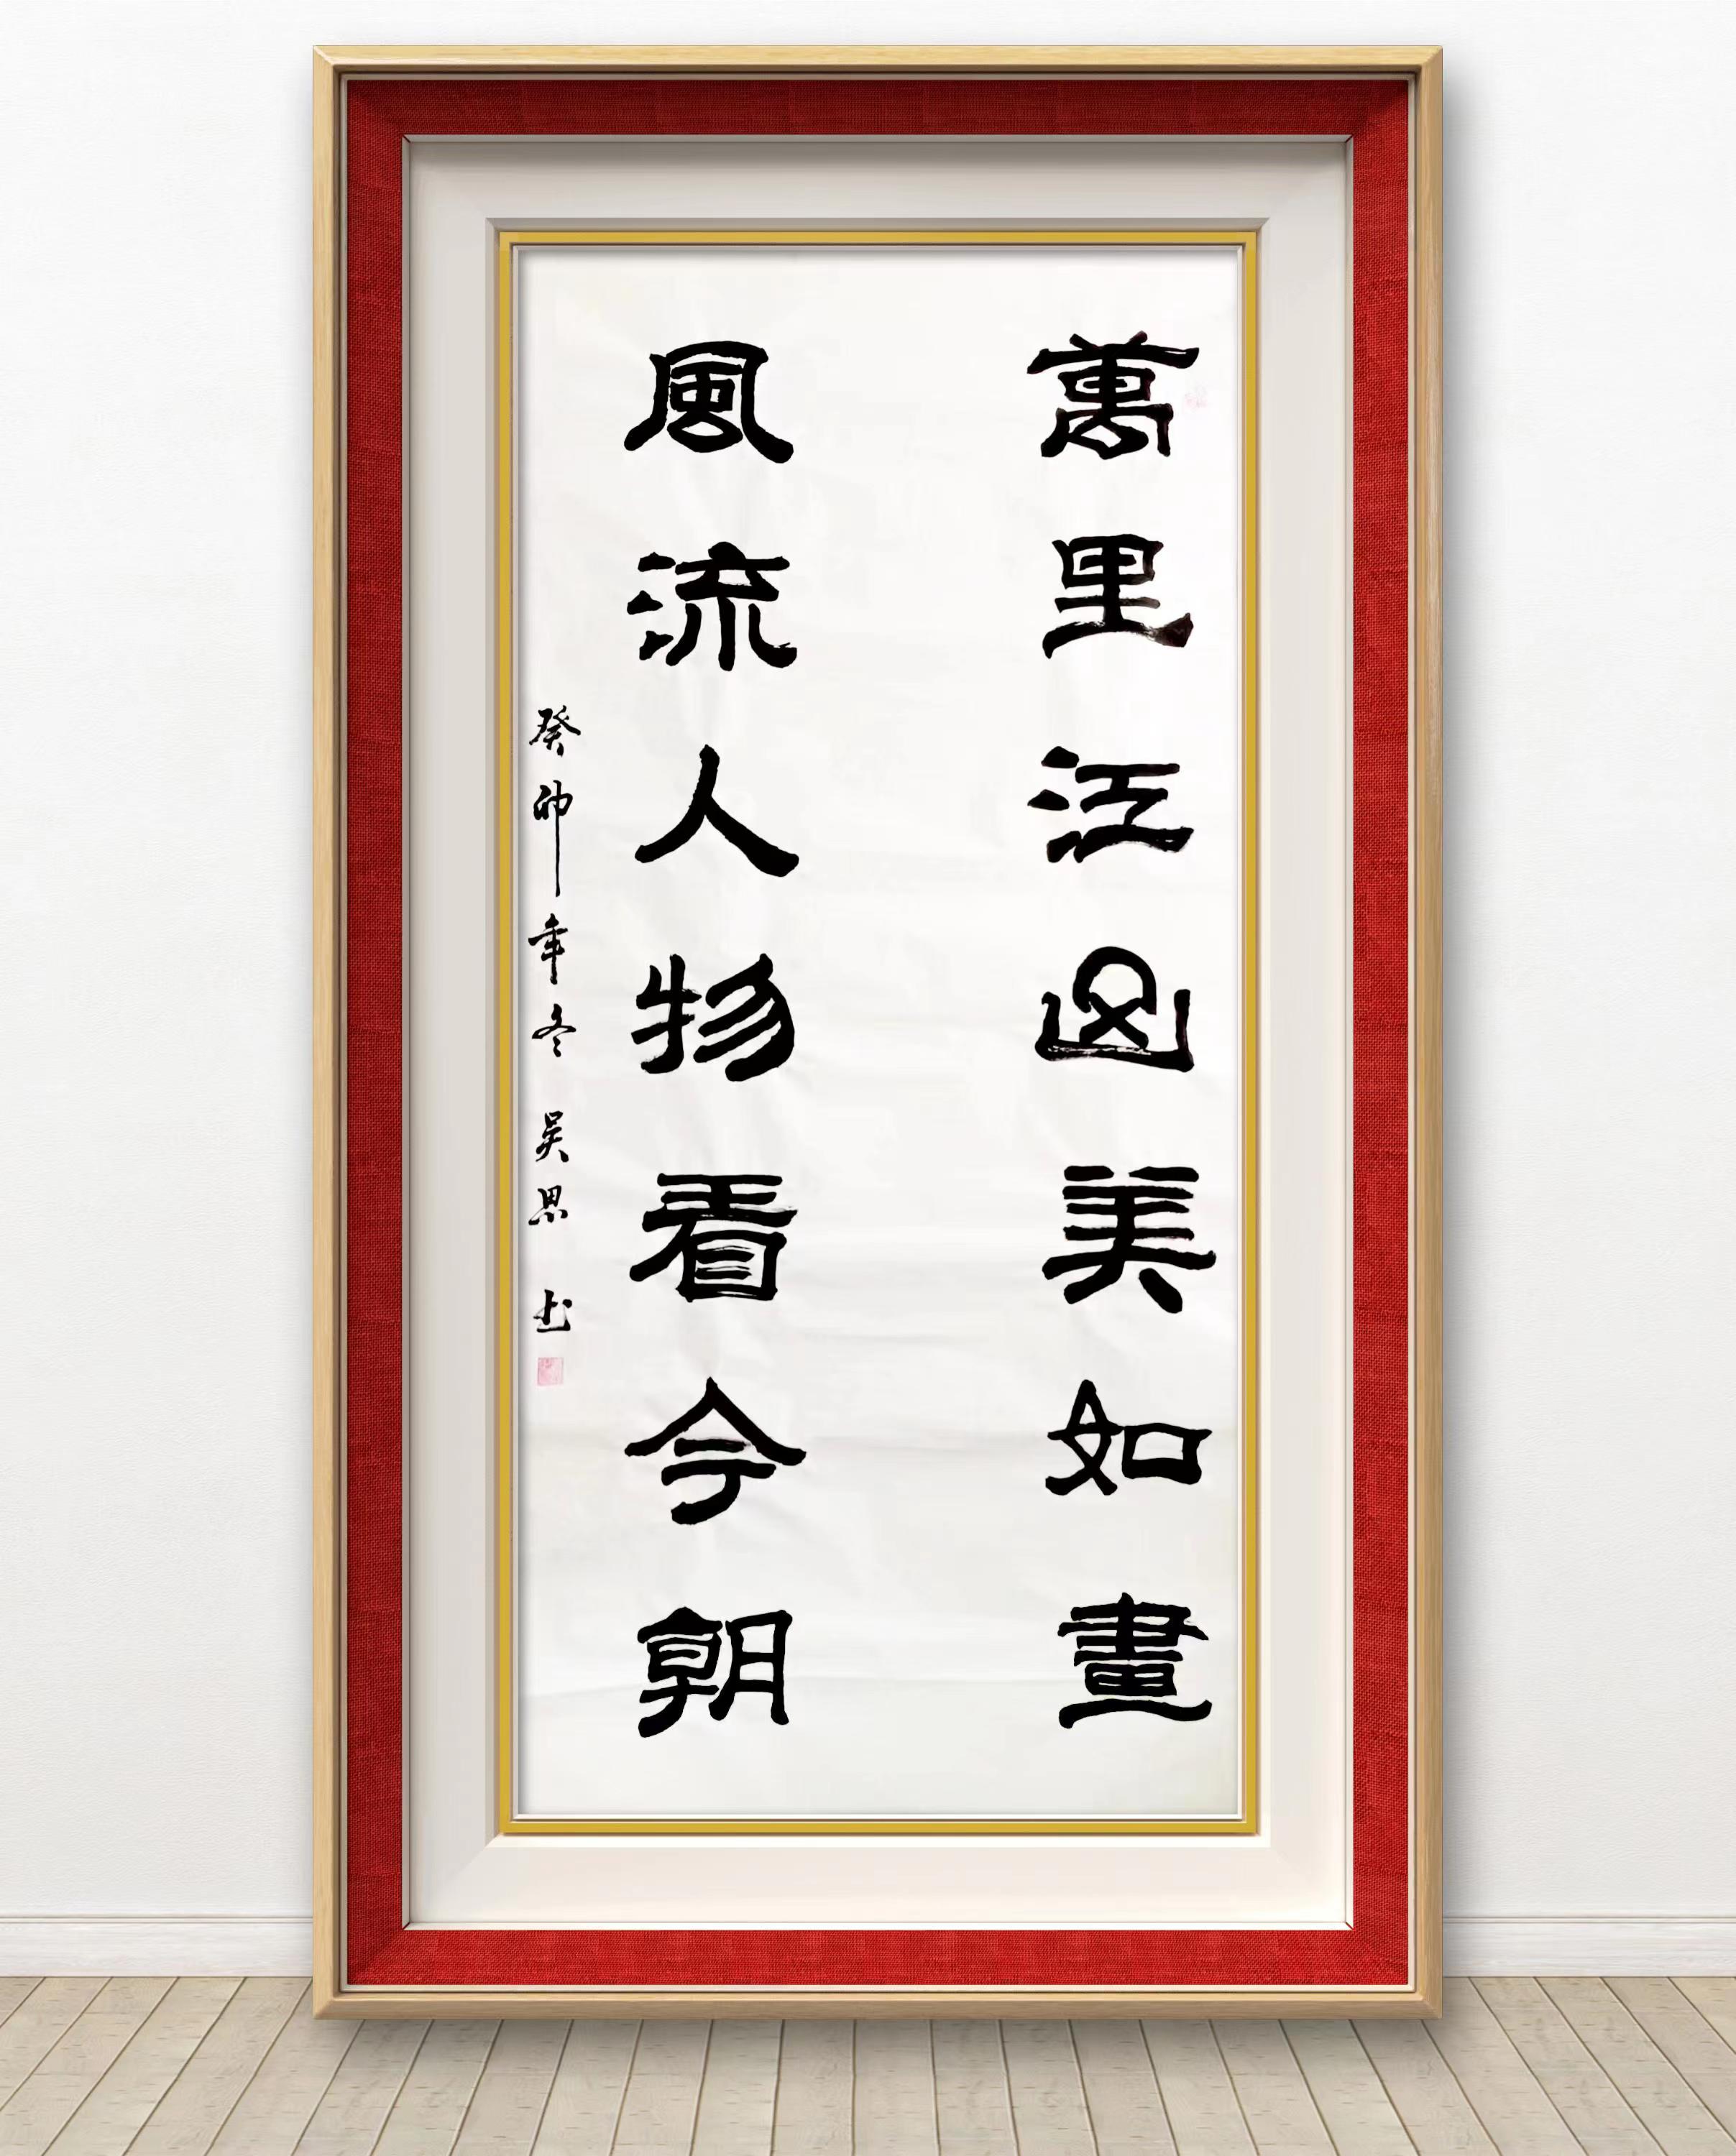 萬里江山美如畫
風流人物看今朝
癸卯年冬 吴思 书